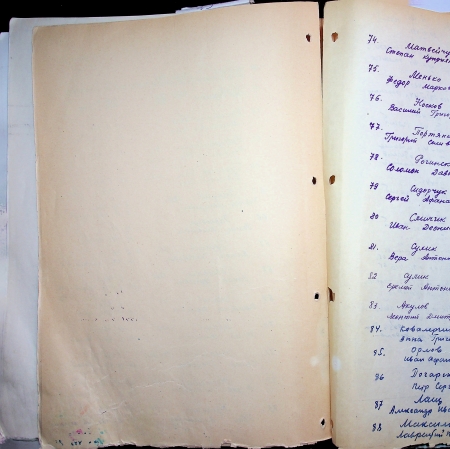 74. Матвейчу
Степан Куприя
75. Менько
Федор Марко
76. Носков
Василий Григ
77. Портян
Григорий
78. Рогинск
Соломон Дав
79 Сидорчук
Сергей Афана
80 Слинчик
Иван
81. Сулик
Вера Антон
82 Сулик
Антон
83 Акулов
Дмит
84. Ковальчик
Анна Григ
85. Орлов
Иван
86 Погар
Петр Сер
87 Лащ
Александр Ив
88 Максим
Лаврентий